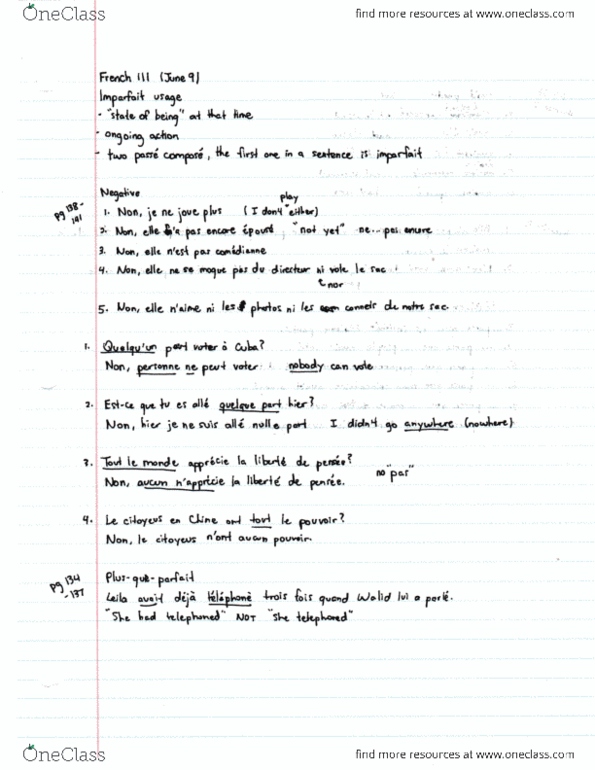 OneClass
find more resources at www.oneclass.com
French 111 (June 9)
Imparfait usage
- "state of being" at that time
- ongoing action
- two passé composé, the first one in a sentence is imparfait
Negative
play
pg 138-141
1. Non, je ne joue plus (I don't either)
2. Non, elle n'a pas encore épousé "not yet" ne...pas encore
3. Non, elle n'est pas comédienne
4. Non, elle ne se moque pas du directeur ni vole le sac
nor
5. Non, elle n'aime ni les photos ni les de notre sac.
1. Quelqu'un part voter à Cuba?
Non, personne ne peut voter nobody can vote
2. Est-ce que tu es allé quelque part hier?
Non, hier je ne suis allé nulle part I didn't go anywhere (nowhere)
3. Tout le monde apprécie la liberté de pensée?
no "pas"
Non, aucun n'apprécie la liberté de pensée.
4. Le citoyens en Chine ont tout le pouvoir?
Non, le citoyens n'ont aucun pouvoir.
pg 134-137
Plus-que-parfait
Leila avait déjà téléphoné trois fois quand Walid lui a parlé.
"She had telephoned" NOT "She telephoned"
OneClass
find more resources at www.oneclass.com